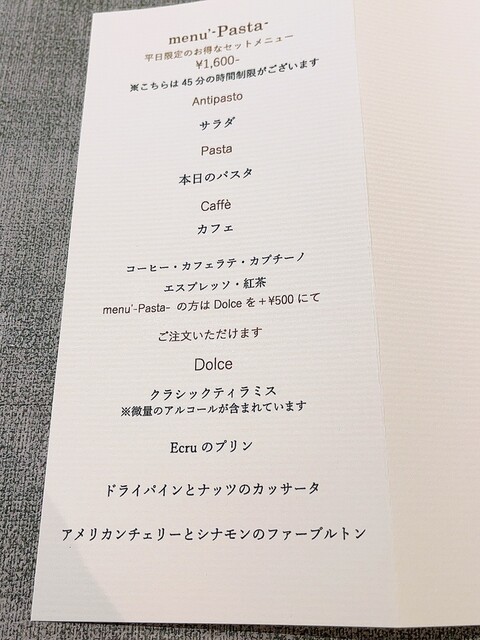 menu'-Pasta-
平日限定のお得なセットメニュー
¥1,600-
※こちらは 45 分の時間制限がございます
Antipasto
サラダ
Pasta
本日のパスタ
Caffè
カフェ
コーヒー・カフェラテ・カプチーノ
エスプレッソ・紅茶
menu'-Pasta- の方は Dolce を＋¥500 にて
ご注文いただけます
Dolce
クラシックティラミス
※微量のアルコールが含まれています
Ecru のプリン
ドライパインとナッツのカッサータ
アメリカンチェリーとシナモンのファーブルトン